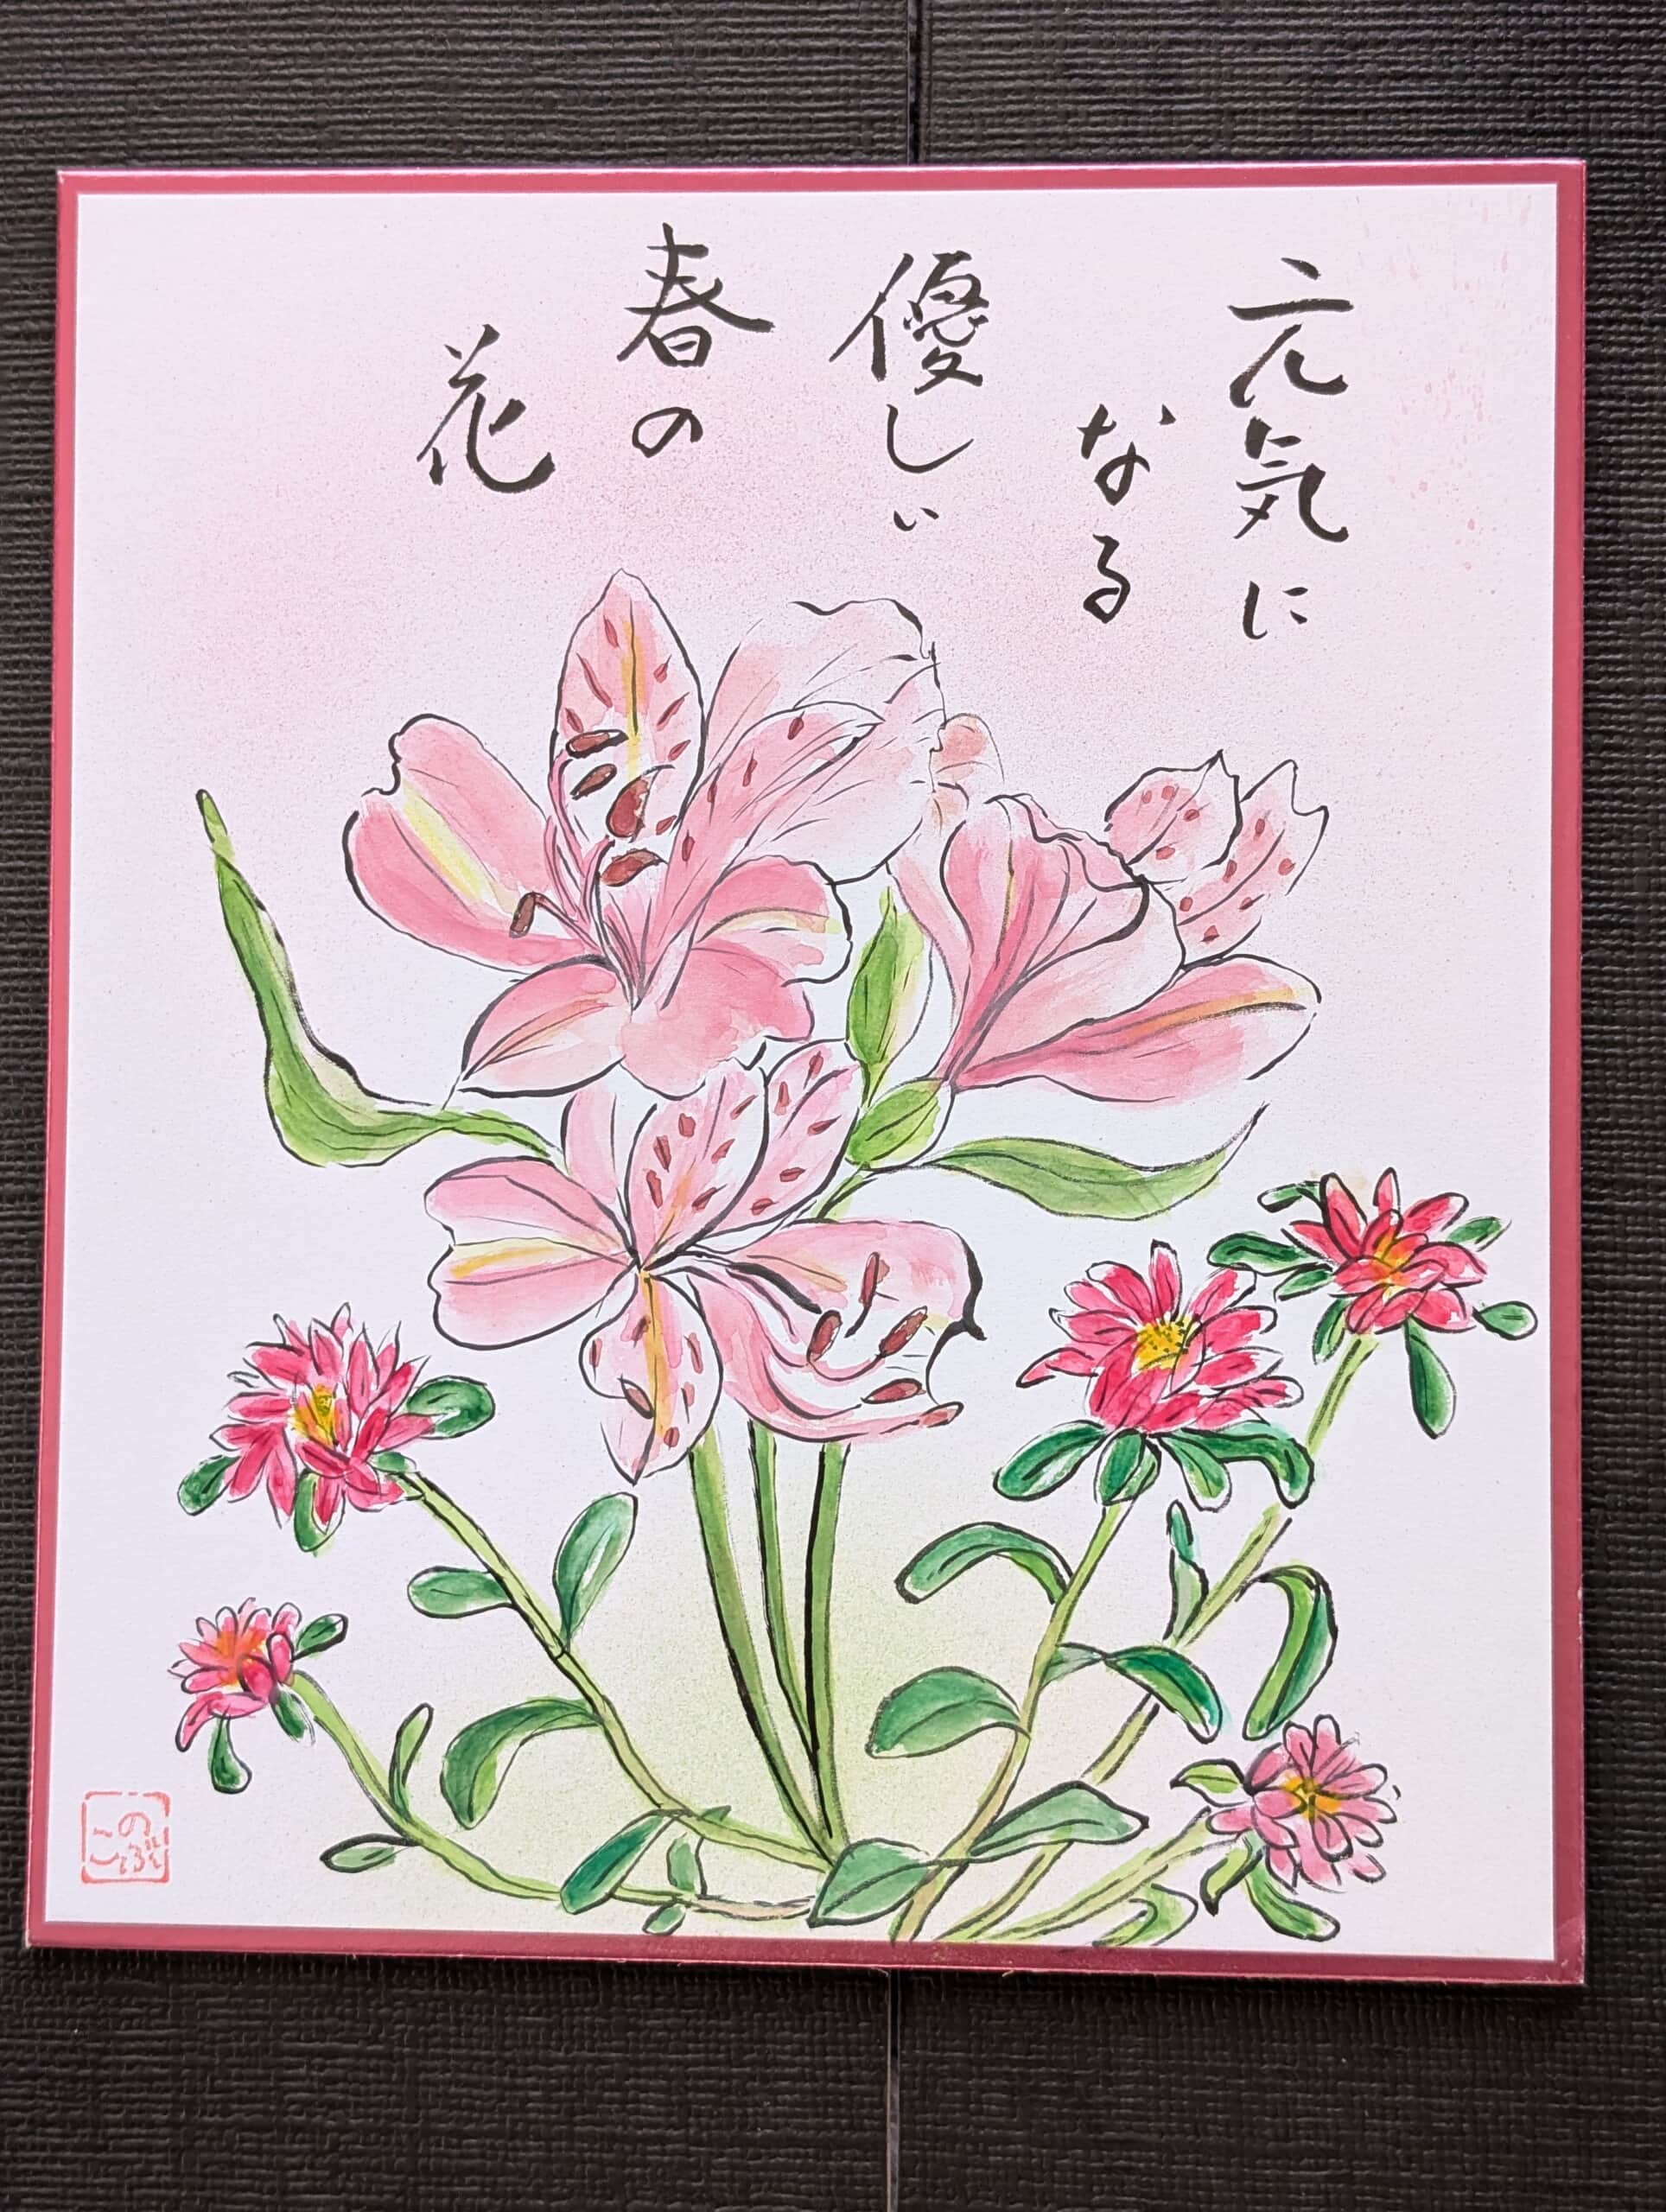 元気に
なる
優しい
春の
花
のぶこ